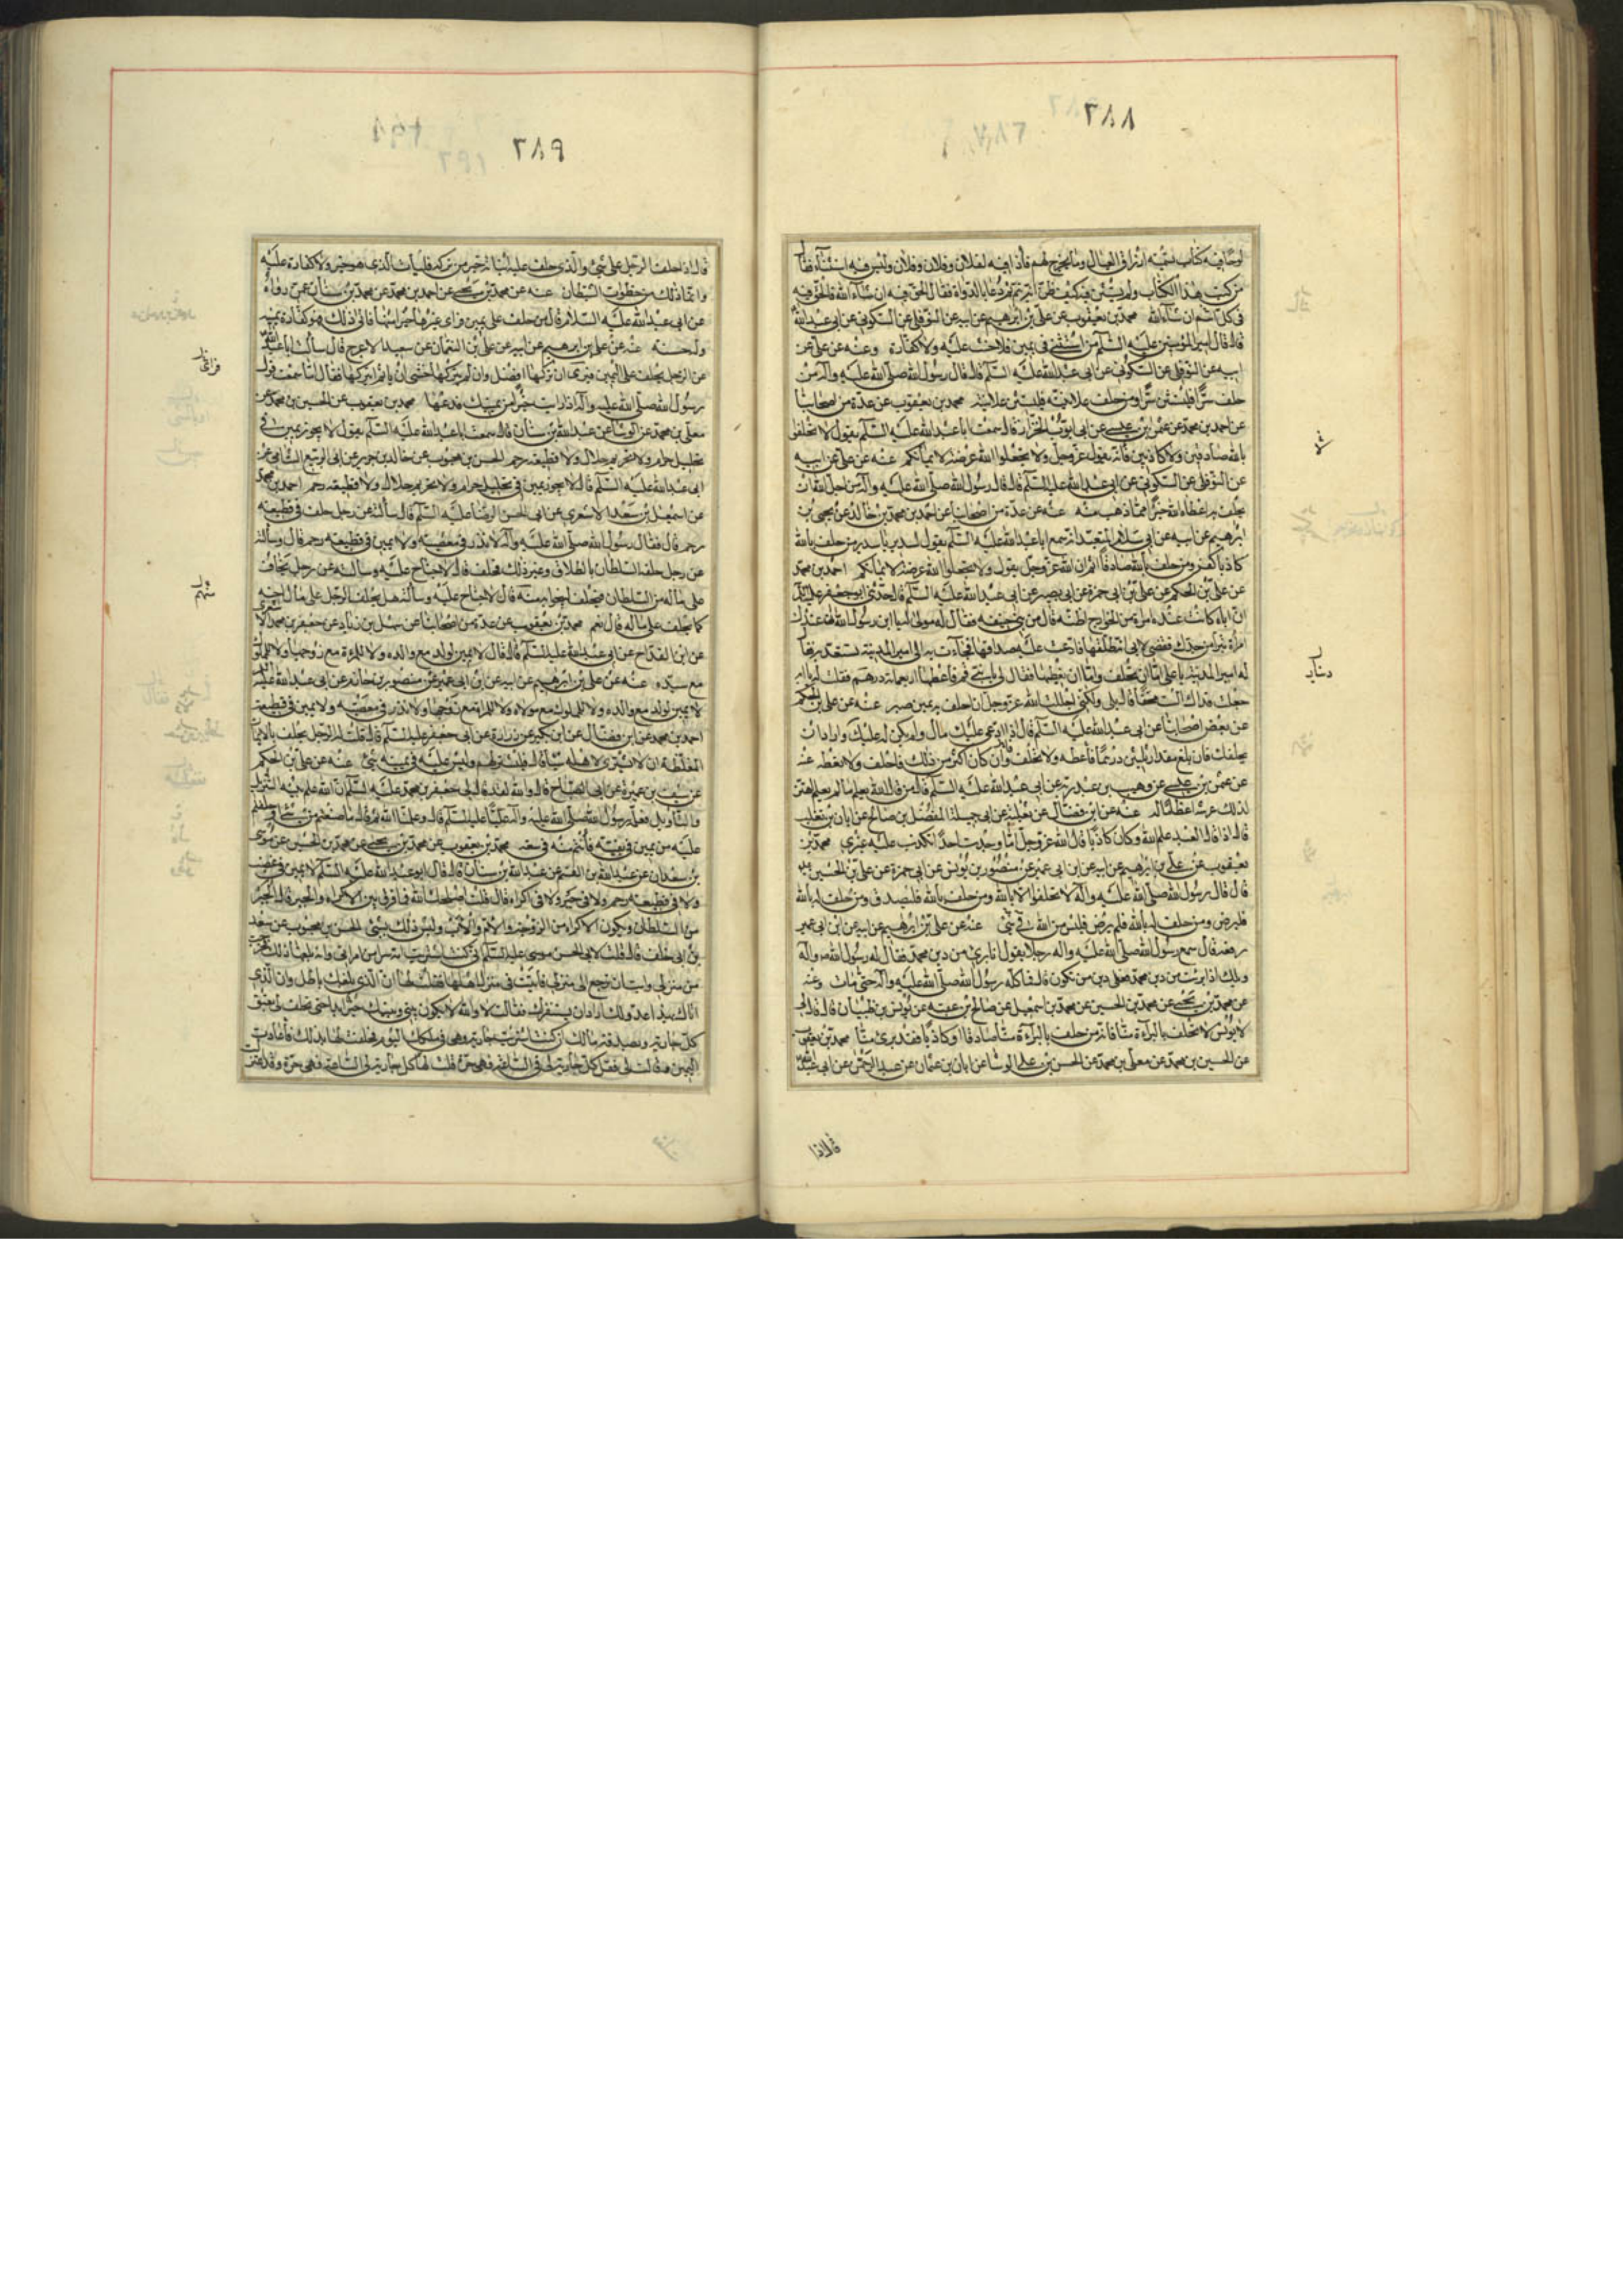 ٢٨٨
لوسا فيه كتاب نفقته ارزاق العيال وما يخرج لهم فاذا فيه لفلان وفلان وفلان وليس فيه استثناء فقال
من كتب هذا الكتاب ولم يستثن فيه كيف ظن انه يتم ثم دعا بالدواة فقال الحق فيه ان شاء الله فالحق فيه
في كل اسم ان شاء الله محمد بن يعقوب عن علي بن ابرهيم عن ابيه عن النوفلي عن السكوني عن ابي عبد الله
قال قال امير المؤمنين عليه السلم من استثنى في يمين فلا حنث عليه ولا كفارة وعنه عن علي عن
ابيه عن النوفلي عن السكوني عن ابي عبد الله عليه السلم قال قال رسول الله صلى الله عليه وآله من
حلف سرا فليستثن سرا ومن حلف علانية فليستثن علانية محمد بن يعقوب عن عدة من اصحابنا
عن احمد بن محمد عن عثمن بن عيسى عن ابي ايوب الخزاز قال سمعت ابا عبد الله عليه السلم يقول لا تحلفوا
بالله صادقين ولا كاذبين فانه يقول عز وجل ولا تجعلوا الله عرضة لايمانكم عنه عن علي عن ابيه
عن النوفلي عن السكوني عن ابي عبد الله عليه السلم قال قال رسول الله صلى الله عليه وآله من اجل الله ان
يحلف به اعطاه الله خيرا مما ذهب منه عنه عن عدة من اصحابنا عن احمد بن محمد بن خالد عن يحيى بن
ابرهيم عن ابيه عن ابي سلام المتعبد انه سمع ابا عبد الله عليه السلم يقول لسدير يا سدير من حلف بالله
كاذبا كفر ومن حلف بالله صادقا اثم ان الله عز وجل يقول ولا تجعلوا الله عرضة لايمانكم احمد بن محمد
عن علي بن الحكم عن علي بن ابي حمزة عن ابي بصير عن ابي عبد الله عليه السلم قال حدثني ابو جعفر عليه السلم
ان اباه كانت عنده امراة من الخوارج اظنه قال من بني حنيفة فقال له مولى له يا ابن رسول الله ان عندك
امراة تبرأ من جدك فقضى لابي انه طلقها فادعت عليه صداقها فجاءت به الى امير المدينة تستعديه فقال
له امير المدينة يا علي اما ان تحلف واما ان تعطيها فقال لي يا بني قم فاعطها اربعمائة دينار فقلت له يا ابه
جعلت فداك الست محقا قال بلى ولكني اجللت الله عز وجل ان احلف به يمين صبر عنه عن علي بن الحكم
عن بعض اصحابنا عن ابي عبد الله عليه السلم قال اذا ادعي عليك مال ولم يكن له عليك واراد ان
يحلفك فان بلغ مقدار ثلثين درهما فاعطه ولا تحلف وان كان اكثر من ذلك فاحلف ولا تعطه عنه
عن عثمن بن عيسى عن وهيب بن عبد ربه عن ابي عبد الله عليه السلم قال من قال الله يعلم ما لم يعلم اهتز
لذلك عرشه اعظاما له عنه عن ابن فضال عن ثعلبة عن ابي جميلة المفضل بن صالح عن ابان بن تغلب
قال اذا قال العبد علم الله وكان كاذبا قال الله عز وجل اما وجدت احدا تكذب عليه غيري محمد بن
يعقوب عن علي بن ابرهيم عن ابيه عن ابن ابي عمير عن منصور بن يونس عن ابي حمزة عن علي بن الحسين
قال قال رسول الله صلى الله عليه وآله لا تحلفوا الا بالله ومن حلف بالله فليصدق ومن حلف له بالله
فليرض ومن حلف له بالله فلم يرض فليس من الله في شئ عنه عن علي بن ابرهيم عن ابيه عن ابن ابي عمير
رفعه قال سمع رسول الله صلى الله عليه وآله رجلا يقول انا بريء من دين محمد فقال له رسول الله ص وآله
ويلك اذا برئت من دين محمد فعلى دين من تكون قال فما كلمه رسول الله صلى الله عليه وآله حتى مات وعنه
عن محمد بن يحيى عن محمد بن الحسين عن محمد بن اسمعيل عن صالح بن عقبة عن يونس بن ظبيان قال قال لي
لا يونس لا تحلف بالبراءة منا فانه من حلف بالبراءة منا صادقا او كاذبا فقد برئ منا محمد بن يعقوب
عن الحسين بن محمد عن معلى بن محمد عن الحسن بن علي الوشا عن ابان بن عثمان عن عبد الرحمن عن ابي عبد الله
قال اذا
٢٨٩
قال اذا حلف الرجل على شئ والذي حلف عليه اتيانه خير من تركه فليأت الذي هو خير ولا كفارة عليه
وانما ذلك من خطوات الشيطان عنه عن محمد بن يحيى عن احمد بن محمد عن محمد بن سنان عمن رواه
عن ابي عبد الله عليه السلام قال من حلف على يمين فراى غيرها خيرا منها فاتى ذلك فهو كفارة يمينه
وله حسنة عنه عن علي بن ابرهيم عن ابيه عن علي بن النعمان عن سعيد الاعرج قال سألت ابا عبد الله
عن الرجل يحلف على اليمين فيرى ان تركها افضل وان لم يتركها خشي ان ياثم ايتركها فقال اما سمعت قول
رسول الله صلى الله عليه وآله اذا رايت خيرا من يمينك فدعها محمد بن يعقوب عن الحسين بن محمد عن
معلى بن محمد عن الوشا عن عبد الله بن سنان قال سمعت ابا عبد الله عليه السلم يقول لا يجوز يمين في
تحليل حرام ولا تحريم حلال ولا قطيعة رحم الحسن بن محبوب عن خالد بن جرير عن ابي الربيع الشامي عن
ابي عبد الله عليه السلم قال لا يجوز يمين في تحليل حرام ولا تحريم حلال ولا قطيعة رحم احمد بن محمد
عن اسمعيل بن سعد الاشعري عن ابي الحسن الرضا عليه السلم قال سألته عن رجل حلف في قطيعة
رحم قال فقال رسول الله صلى الله عليه وآله لا نذر في معصية ولا يمين في قطيعة رحم قال وسألته
عن رجل حلفه السلطان بالطلاق وغير ذلك فحلف قال لا جناح عليه وسألته عن رجل يخاف
على ماله من السلطان فيحلف لينجو به منه قال لا جناح عليه وسألته هل يحلف الرجل على مال اخيه
كما يحلف على ماله قال نعم محمد بن يعقوب عن عدة من اصحابنا عن سهل بن زياد عن جعفر بن محمد الاشعري
عن ابن القداح عن ابي عبد الله عليه السلم قال قال لا يمين لولد مع والده ولا للمراة مع زوجها ولا للمملوك
مع سيده عنه عن علي بن ابرهيم عن ابيه عن ابن ابي عمير عن منصور بن حازم عن ابي عبد الله عليه السلم
لا يمين لولد مع والده ولا للمملوك مع مولاه ولا للمراة مع زوجها ولا نذر في معصية ولا يمين في قطيعة
احمد بن محمد عن ابن فضال عن ابن بكير عن زرارة عن ابي جعفر عليه السلم قال قلت له الرجل يحلف بالايمان
المغلظة ان لا يشتري لاهله شيا قال فليشتر لهم وليس عليه في يمينه شئ عنه عن علي بن الحكم
عن سيف بن عميرة عن ابي الصباح قال والله لقد قال لي جعفر بن محمد عليه السلم ان الله علم نبيه التنزيل
والتاويل فعلمه رسول الله صلى الله عليه وآله عليا عليه السلم قال وعلمنا الله ثم قال ما صنعتم من شئ او حلفتم
عليه من يمين في تقية فانتم منه في سعة محمد بن يعقوب عن محمد بن يحيى عن محمد بن الحسين عن موسى
بن سعدان عن عبد الله بن القسم عن عبد الله بن سنان قال قال ابو عبد الله عليه السلم لا يمين في غضب
ولا في قطيعة رحم ولا في جبر ولا في اكراه قال قلت اصلحك الله فما فرق بين الاكراه والجبر قال الجبر
من السلطان ويكون الاكراه من الزوجة والام والاب وليس ذلك بشئ الحسن بن محبوب عن سعد
بن ابي خلف قال قلت لابي الحسن موسى عليه السلم اني كنت اشتريت امة سرا من امراتي وانه بلغها ذلك فخرجت
من منزلي وابت ان ترجع الى منزلي فاتيتها في منزل اهلها فقلت لها ان الذي بلغك باطل وان الذي
اتاك بهذا عدو لك اراد ان يستفزك فقالت لا والله لا يكون بيني وبينك خير ابدا حتى تحلف لي بعتق
كل جارية لك وبصدقة مالك ان كنت اشتريت جارية وهي في ملكك اليوم فحلفت لها بذلك فاعادت
اليمين فقالت لي فقل كل جارية لي الساعة فهي حرة فقلت لها كل جارية لي الساعة فهي حرة وقد اعتزلت